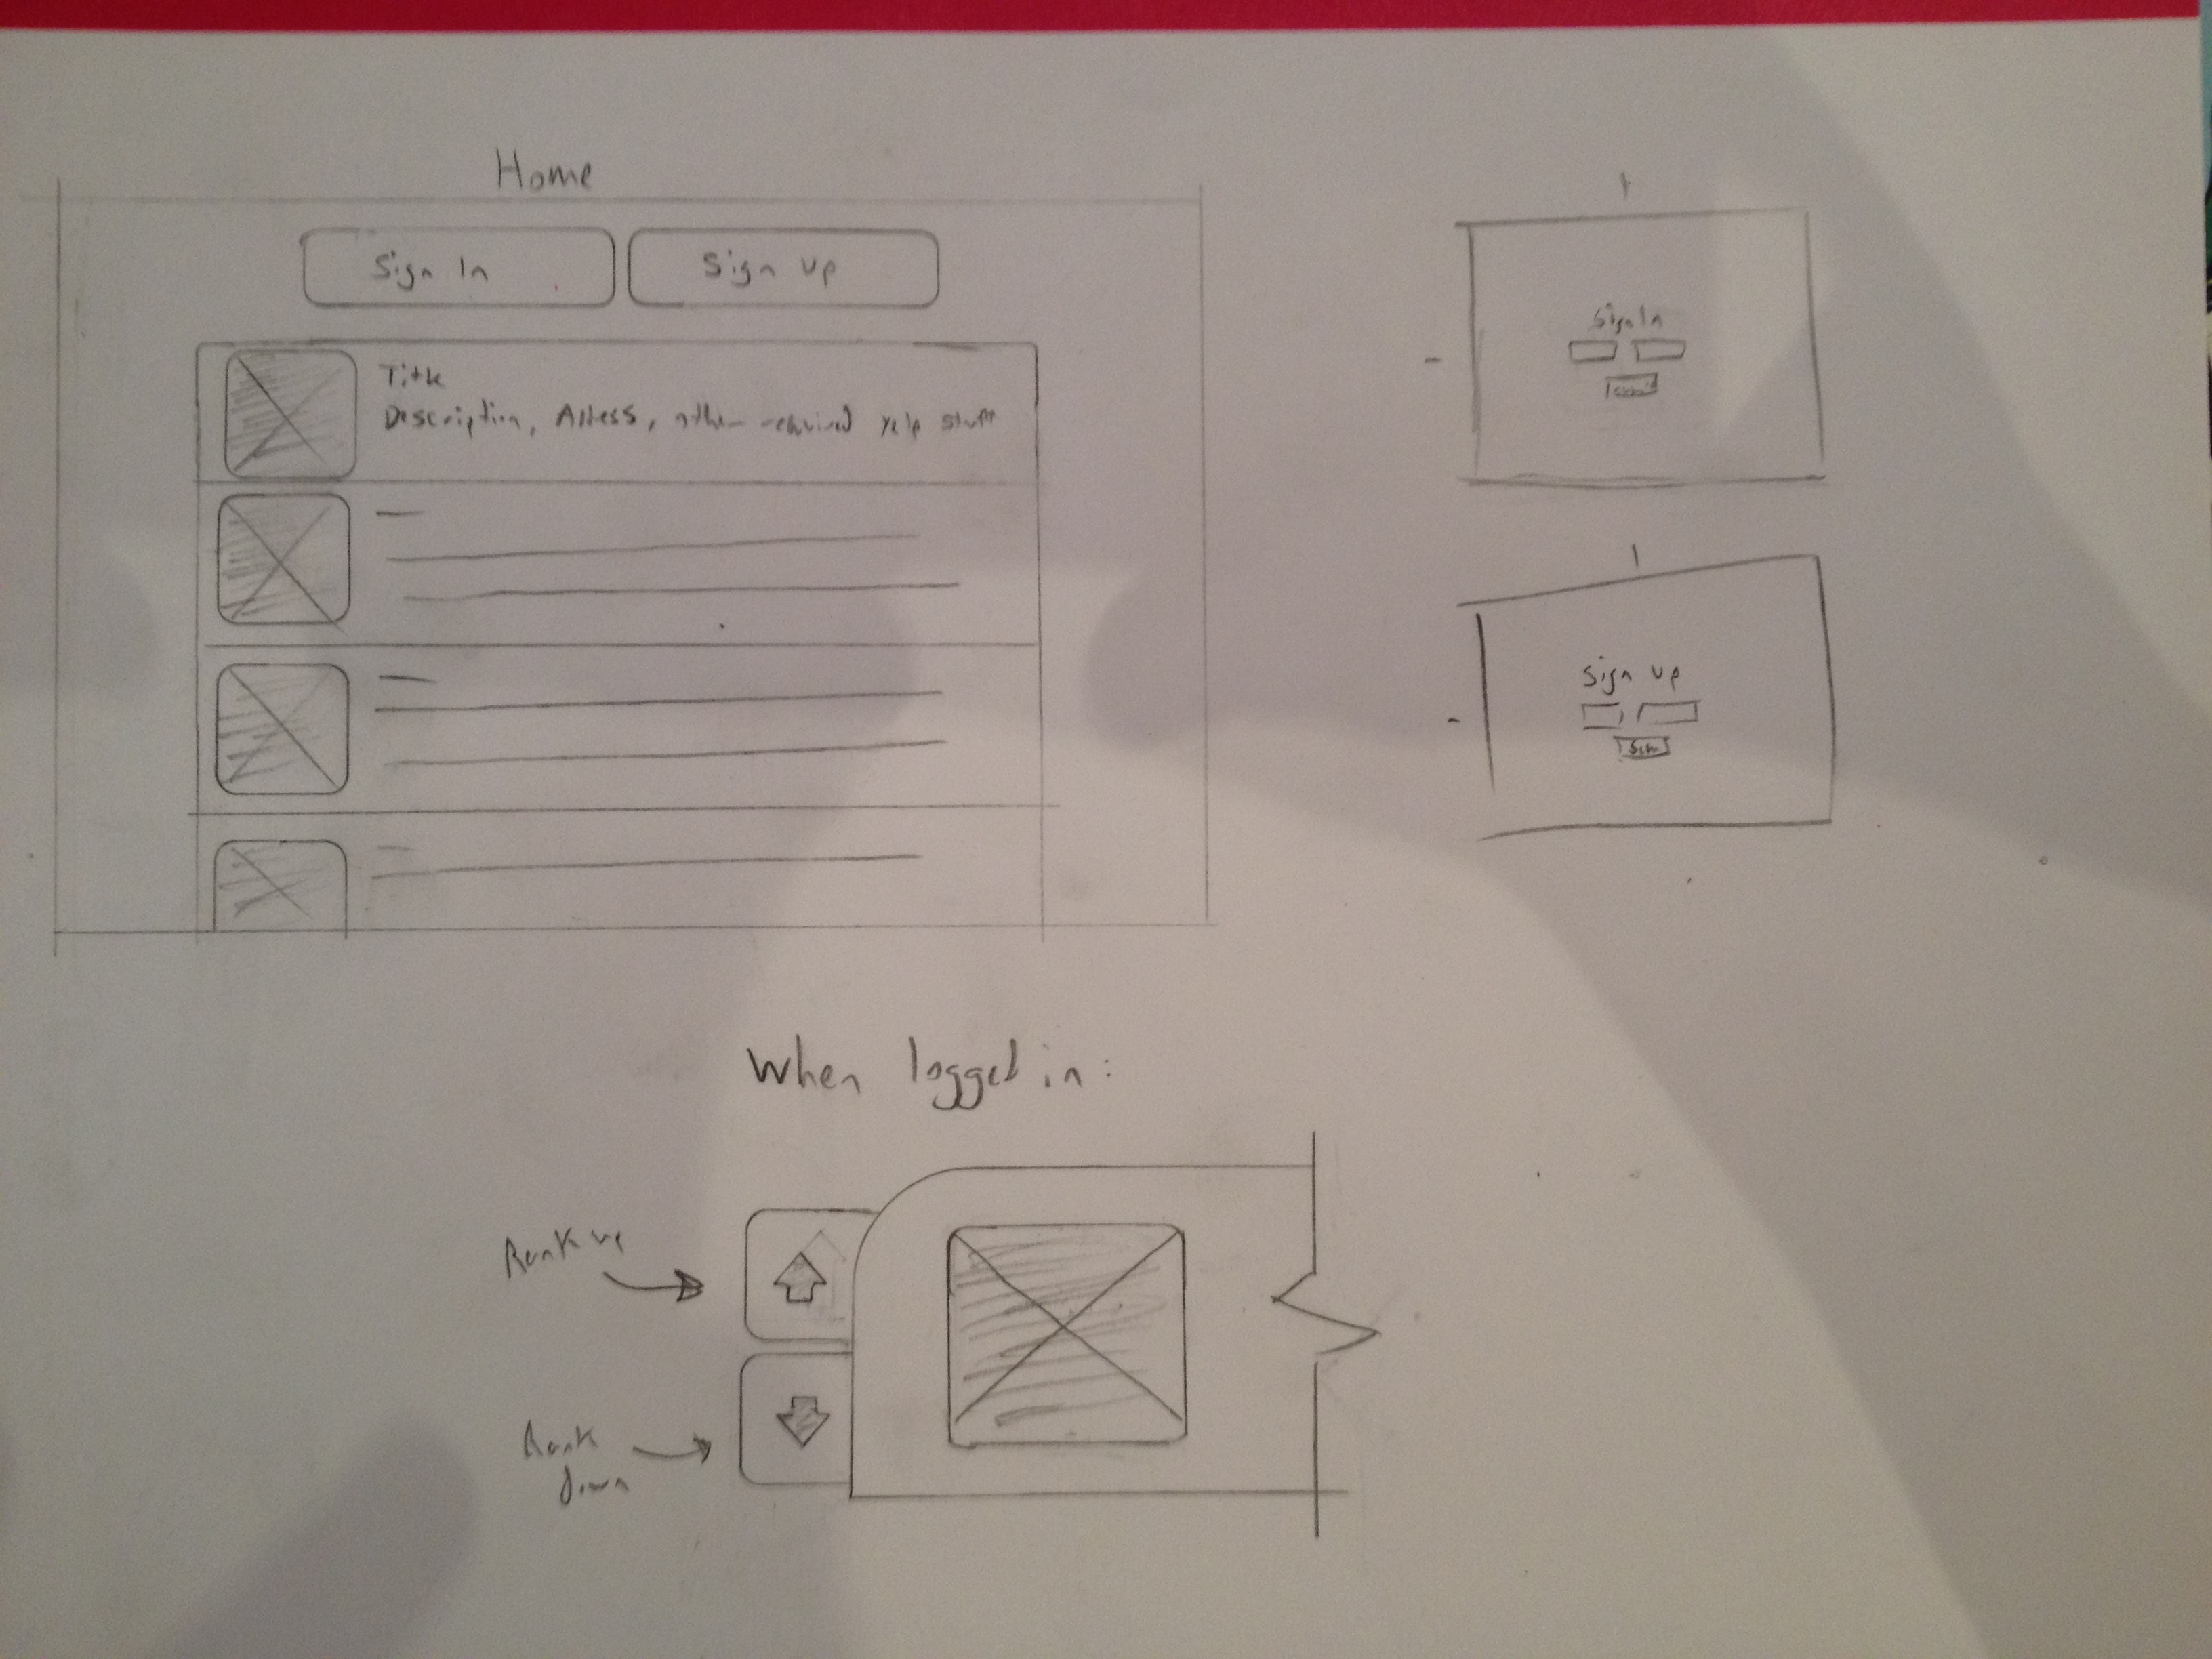 Home
Sign In
Sign Up
Title
Description, Address, other required yelp stuff
Sign In
Sign up
When logged in:
Rank up
Rank
down